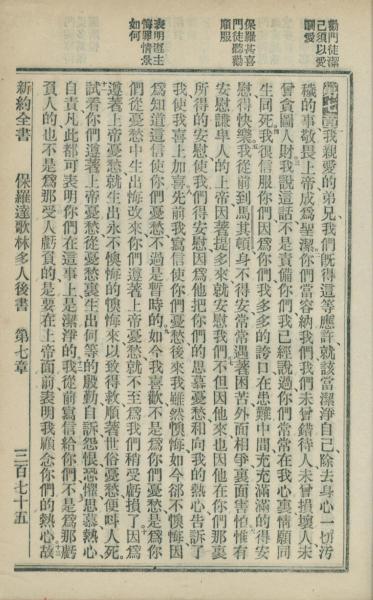 勸門徒潔
己須以愛
酬愛
保羅甚喜
門徒聽勸
順服
表明遵主
悔罪情景
如何
第七章我親愛的弟兄我們旣得這等應許就該當潔淨自己除去身心一切汚
穢的事敬畏上帝成爲聖潔你們當容納我們我們未曾錯待人未曾損壞人未
曾貪圖人財我說這話不是責備你們我已經說過你們常常在我心裏情願同
生同死我很信服你們因爲你們我多多的誇口在患難中間充充滿滿的得安
慰得快樂我從前到馬其頓身不得安常常遇著困苦外面相爭裏面害怕惟有
安慰謙卑人的上帝因著提多來就安慰我們不但因他來也因他在你們那裏
所得的安慰使我們得安慰因爲他把你們的思慕憂愁和向我的熱心告訴了
我使我喜上加喜先前我寫信使你們憂愁後來我雖然懊悔如今卻不懊悔因
爲知道這信使你們憂愁不過是暫時的如今我喜歡不是爲你們憂愁是爲你
們從憂愁中生出悔改來你們遵著上帝憂愁就不至爲我們稍受虧損了因爲
遵著上帝憂愁就生出永不懊悔的悔來以致得救順著世俗憂愁便呌人死
試看你們遵著上帝憂愁從憂愁裏生出何等的殷勤自訴怨恨恐懼思慕熱心
自責凡此都可表明你們在這事上是潔淨的我從前寫信給你們不是爲那虧
負人的也不是爲那受人虧負的是要在上帝面前表明我顧念你們的熱心故
新約全書 保羅達歌林多人後書 第七章 三百七十五